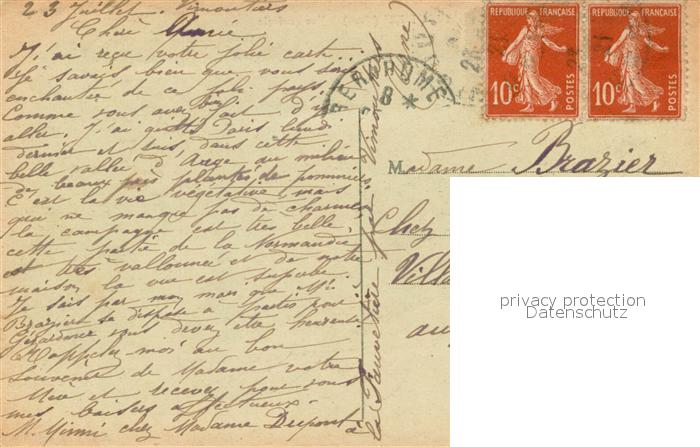 23 Juillet. Vimoutiers
Chère Amie
J'ai reçu votre jolie carte.
Je savais bien que vous seriez
enchantée de ce joli pays,
Comme vous avez bien fait d'y
aller. J'ai quitté Paris lundi
dernier et suis, dans cette
belle vallée d'Auge au milieu
de beaux prés plantés de pommiers
C'est la vie végétative, mais
qui ne manque pas de charmes
la campagne est très belle,
cette partie de la Normandie
est très vallonnée et de notre
maison la vue est superbe.
Je sais par mon mari que Mr
Brazier se dispose à partir pour
Gérardmer vous devez être heureuse
Rappelez-moi au bon
souvenir de Madame votre
Mère et recevez pour vous
mes baisers affectueux.
M. chez Madame Dupont à
la par Vimoutiers
REPUBLIQUE FRANÇAISE
10c POSTES
REPUBLIQUE FRANÇAISE
10c POSTES
8 *
Madame Brazier
Chez
Villa
privacy protection
Datenschutz